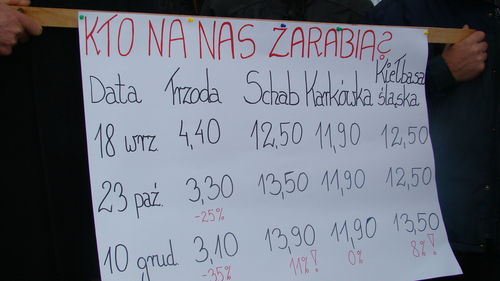 KTO NA NAS ZARABIA?
Data Trzoda Schab Karkówka Kiełbasa śląska
18 wrz 4,40 12,50 11,90 12,50
23 paź. 3,30 13,50 11,90 12,50
-25%
10 grud 3,10 13,90 11,90 13,50
-35% 11%! 0% 8%!